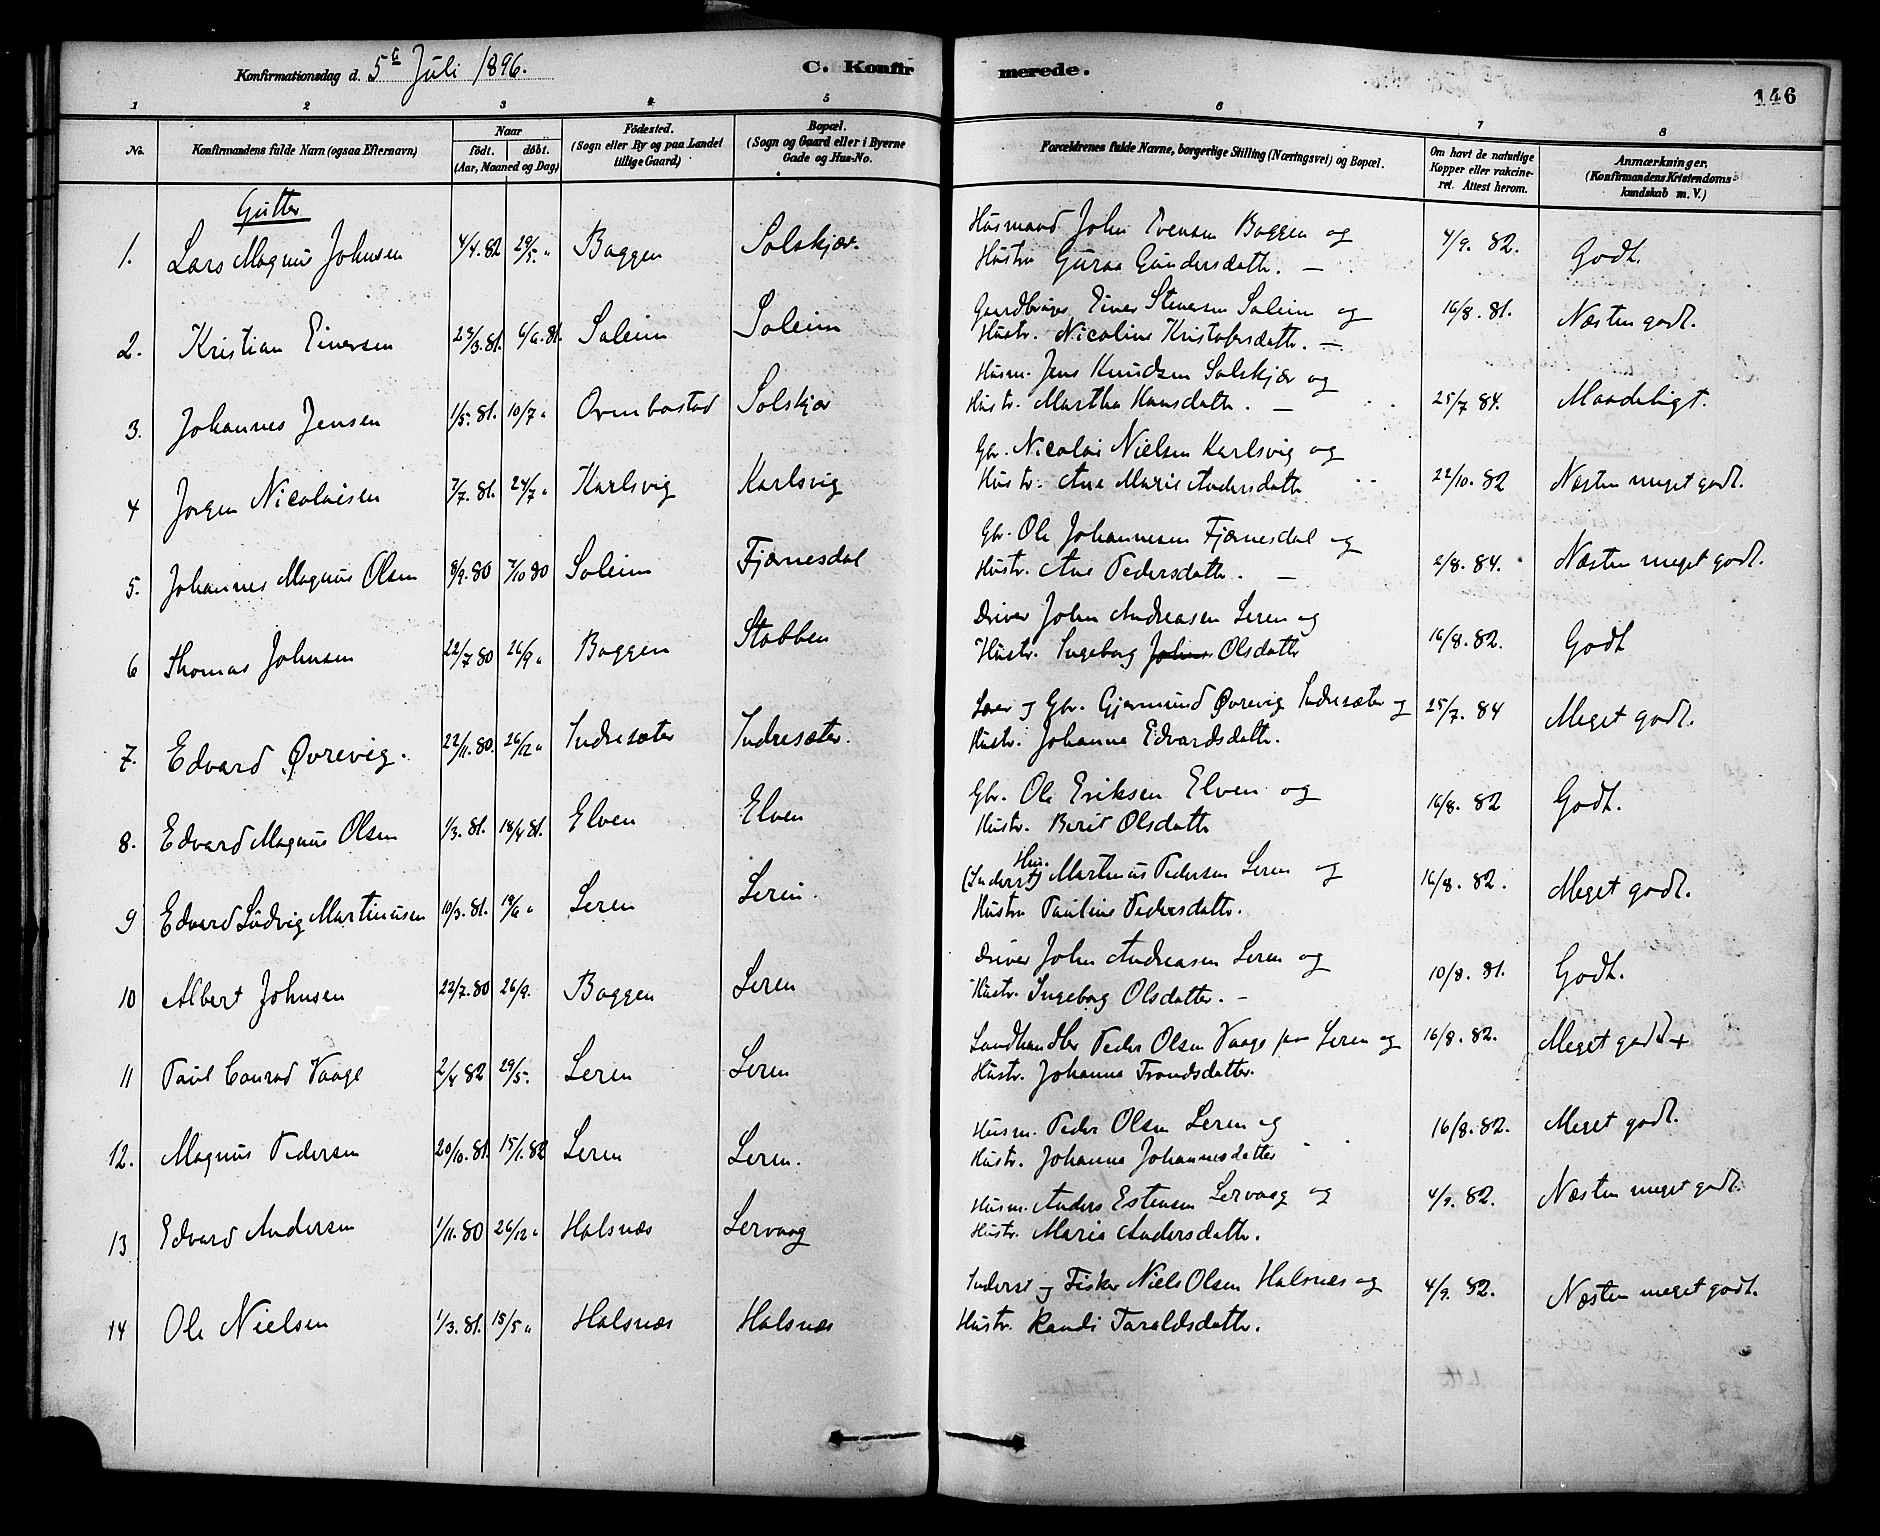 Konfirmationsdag d. 5te Juli 1896.
C. Konfirmerede.
146
1 2 3 4 5 6 7 8
No.
Konfirmandens fulde Navn (ogsaa Efternavn)
Naar
födt. döbt.
(Aar, Maaned og Dag)
Födested.
(Sogn eller By og paa Landet
tillige Gaard)
Bopæl.
(Sogn og Gaard eller i Byerne
Gade og Hus-No.
Forældrenes fulde Navne, borgerlige Stilling (Næringsvei) og Bopæl.
Om havt de naturlige
Kopper eller vakcine-
ret. Attest herom.
Anmærkninger.
(Konfirmandens Kristendoms-
kundskab m. V.)
Gutter
1. Lars Magnus Johnsen 4/4.82 29/5. " Baggen Solskjær. Husmand John Evensen Baggen og 4/9. 82. Godt.
Hustru Guraa Gundersdattr. —
2. Kristian Einersen 23/3.81. 6/6.81. Soleim Soleim Gaardbruger Einer Stenersen Soleim og 16/8. 81. Næsten godt.
Hustr. Nicoline Kristofersdattr. —
3. Johannes Jensen 1/5.81. 10/7 " Ornbostad Solskjær Husm. Jens Knudsen Solskjær og 25/7 84. Maadeligt.
Hustr. Martha Hansdattr. —
4 Jørgen Nicolaisen 7/7.81. 24/7 " Karlsvig Karlsvig Gbr. Nicolai Nielsen Karlsvig og 22/10. 82 Næsten meget godt.
Hustr. Ane Marie Andersdattr
5. Johannes Magnus Olsen 8/9.80 7/10 80 Soleim Fjærnesdal Gbr. Ole Johannesen Fjærnesdal og 2/8. 84. Næsten meget godt.
Hustr. Ane Pedersdattr. —
6 Thomas Johnsen 22/7 80 26/9 " Baggen Stabben Driver John Andreasen Leren og 16/8. 82. Godt
Hustr. Ingeborg Johns Olsdattr
7. Edvard Øvrevig. 22/11.80. 26/12 " Indresæter Indresæter. Lærer og Gbr. Gjermund Øvrevig Indresæter og 25/7. 84 Meget godt.
Hustr. Johanna Edvardsdattr.
8. Edvard Magnus Olsen 1/3.81. 18/4 81. Elven Elven Gbr. Ole Eriksen Elven og 16/8. 82 Godt.
Hustr. Berit Olsdattr
9 Edvard Ludvig Martinusen 10/3.81. 19/6 " Leren Leren. (Inderst) Hus. Martinus Pedersen Leren og 16/8. 82. Meget godt.
Hustru Pauline Pedersdattr.
10 Albert Johnsen 22/7.80 26/9. Baggen Leren Driver John Andreasen Leren og 10/8. 81. Godt.
Hustr. Ingeborg Olsdatter. —
11 Paul Conrad Vaage 2/4 82 29/5. Leren Leren Landhandler Peder Olsen Vaage paa Leren og 16/8. 82. Meget godt +
Hustr. Johanna Trondsdatter.
12. Magnus Pedersen 20/10.81. 15/1.82 Leren Leren. Husm. Peder Olsen Leren og 16/8. 82. Meget godt.
Hustr. Johanna Johannesdatter
13 Edvard Andersen 1/11.80 26/12 " Halsnæs Lervaag Husm. Anders Estensen Lervaag og 4/9. 82. Næsten meget godt.
Hustr. Maria Andersdattr.
14 Ole Nielsen 1/3.81. 15/5 " Halsnæs Halsnæs Inderst og Fisker Niels Olsen Halsnæs og 4/9. 82. Næsten meget godt.
Hustr. Randi Taraldsdattr.